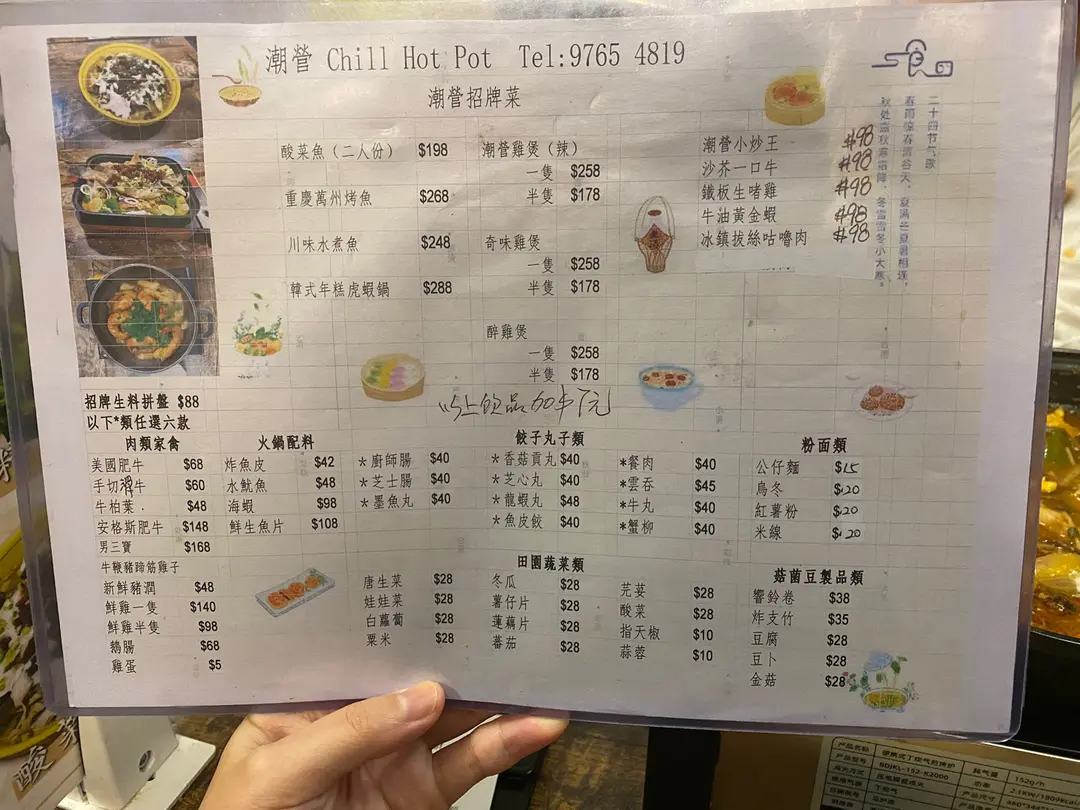 潮營 Chill Hot Pot Tel:9765 4819
潮營招牌菜
酸菜魚（二人份） $198
重慶萬州烤魚 $268
川味水煮魚 $248
韓式年糕虎蝦鍋 $288
潮營雞煲（辣）
一隻 $258
半隻 $178
奇味雞煲
一隻 $258
半隻 $178
醉雞煲
一隻 $258
半隻 $178
潮營小炒王 $98
沙芥一口牛 $98
鐵板生啫雞 $98
牛油黃金蝦 $98
冰鎮拔絲咕嚕肉 $98
二十四节气歌
春雨惊春清谷天，夏满芒夏暑相连，
秋处露秋寒霜降，冬雪雪冬小大寒。
以上飲品加半
招牌生料拼盤 $88
以下*類任選六款
肉類家禽
美國肥牛 $68
手切 牛 $60
牛柏葉 $48
安格斯肥牛 $148
男三寶 $168
牛鞭豬蹄筋雞子
新鮮豬潤 $48
鮮雞一隻 $140
鮮雞半隻 $98
鵝腸 $68
雞蛋 $5
火鍋配料
炸魚皮 $42
水魷魚 $48
海蝦 $98
鮮生魚片 $108
*廚師腸 $40
*芝士腸 $40
*墨魚丸 $40
餃子丸子類
*香菇貢丸 $40
*芝心丸 $40
*龍蝦丸 $48
*魚皮餃 $40
*餐肉 $40
*雲吞 $45
*牛丸 $40
*蟹柳 $40
粉面類
公仔麵 $15
烏冬 $20
紅薯粉 $20
米線 $20
田園蔬菜類
唐生菜 $28
娃娃菜 $28
白蘿蔔 $28
粟米 $28
冬瓜 $28
薯仔片 $28
蓮藕片 $28
蕃茄 $28
芫荽 $28
酸菜 $28
指天椒 $10
蒜蓉 $10
菇菌豆製品類
響鈴卷 $38
炸支竹 $35
豆腐 $28
豆卜 $28
金菇 $28
酸
产品名称 便携式丁烷气煎烤炉
产品型号 BDJKL-152-K2000
点火方式 压电陶瓷点火
使用气源 丁烷气
耗气量 152g/h
功率
产品尺寸